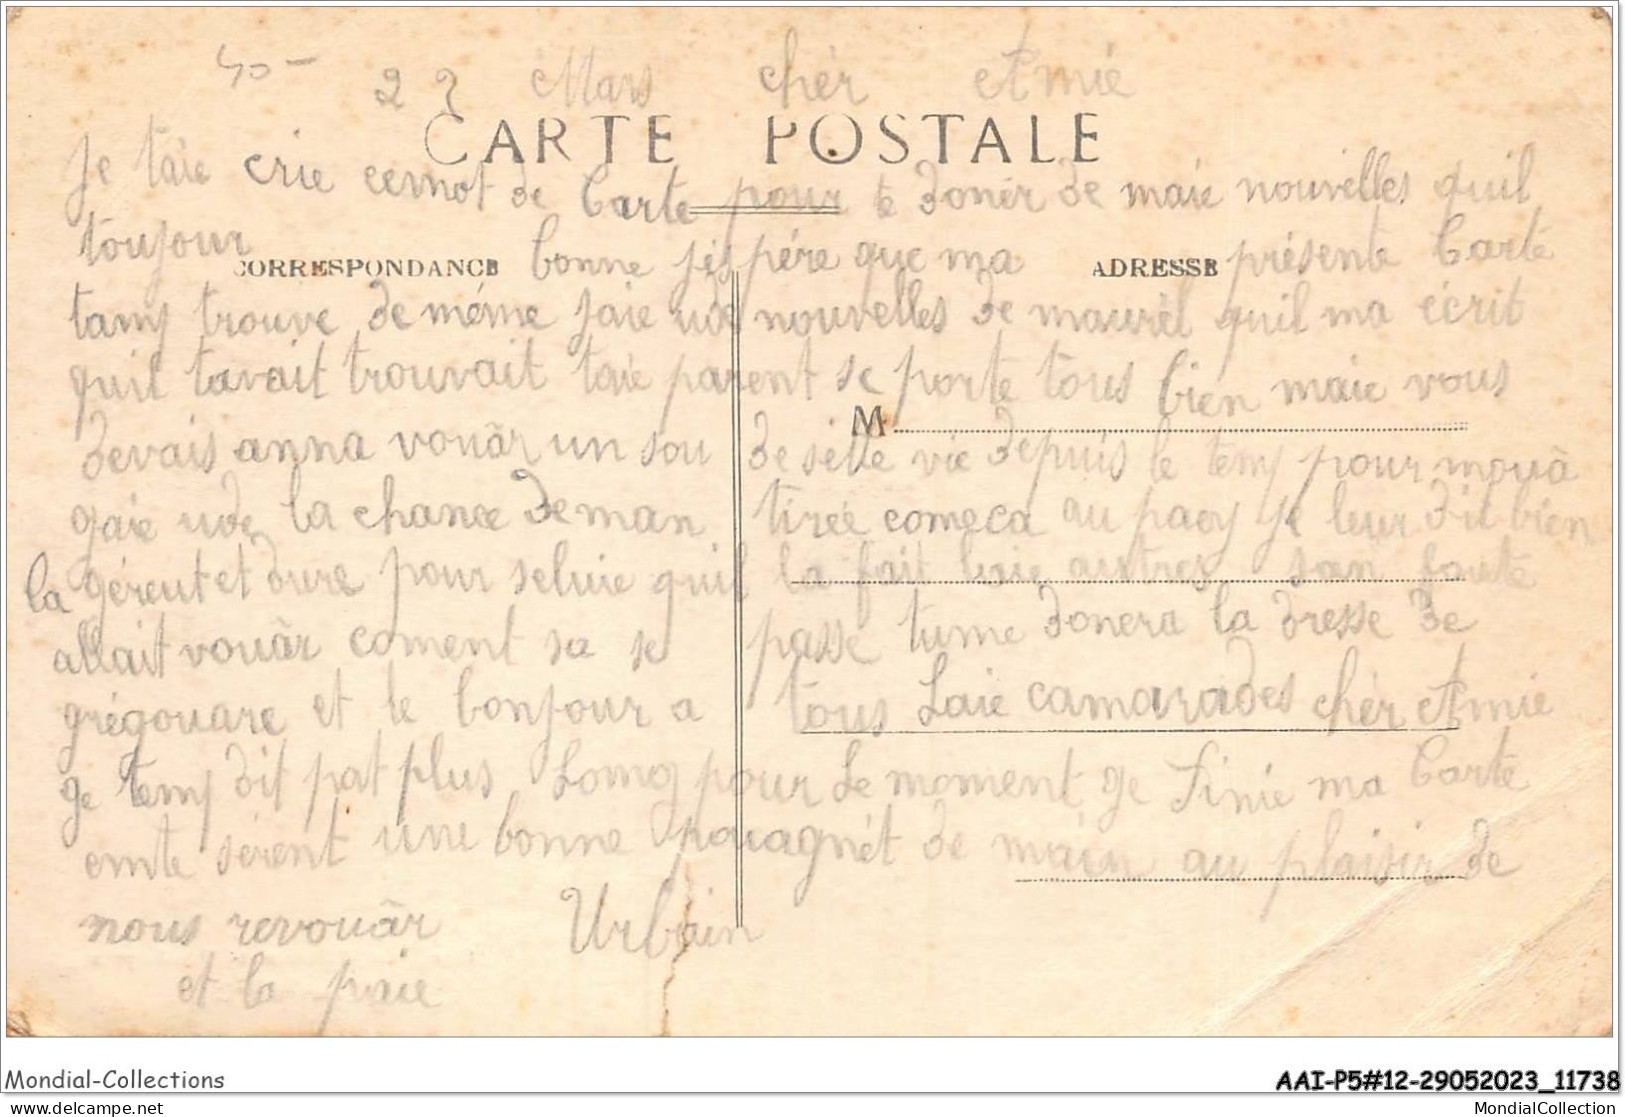 40-
22 Mars chér Amie
CARTE POSTALE
Je taie crie cemot de Carte pour te donér de maie nouvelles quil
toujour
CORRESPONDANCE bonne jéspére que ma ADRESSE présente Carte
tamp trouve de méme jaie ude nouvelles de maurél quil ma écrit
quil tavait trouvait taie parent se porte tous bien maie vous
M
devais anna vouâr un sou de sette vie depuis le temp pour mouâ
gaie ude la chance deman tirée comeca au pacy je leur dit bien
la géreut et dure pour seluie quil la fait laie autres san faute
allait vouâr coment sa se passe tume donera la dresse de
grégouare et le bonjour a tous Laie camarades chér Amie
ge temp dit pat plus Long pour Le moment ge Finie ma Carte
emte sérent une bonne pouagnét de main au plaisir de
nous revouâr Urbain
et la paie
Mondial-Collections
AAI-P5#12-29052023_11738
delcampe.net
MondialCollection